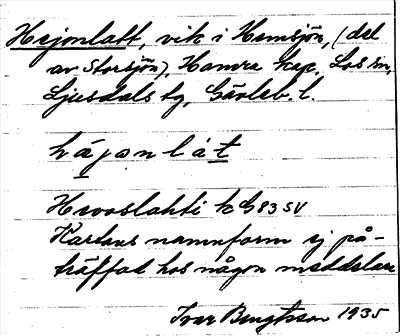 Hejonlatt, vik i Hemsjön, (del
av Storsjön), Hamra kap., Los sn,
Ljusdals tg, Gävleb. l.
häjonlát
Hevoslahti k G83 SV
Kartans namnform ej på-
träffad hos någon meddelare
Ivar Bengtsson 1935